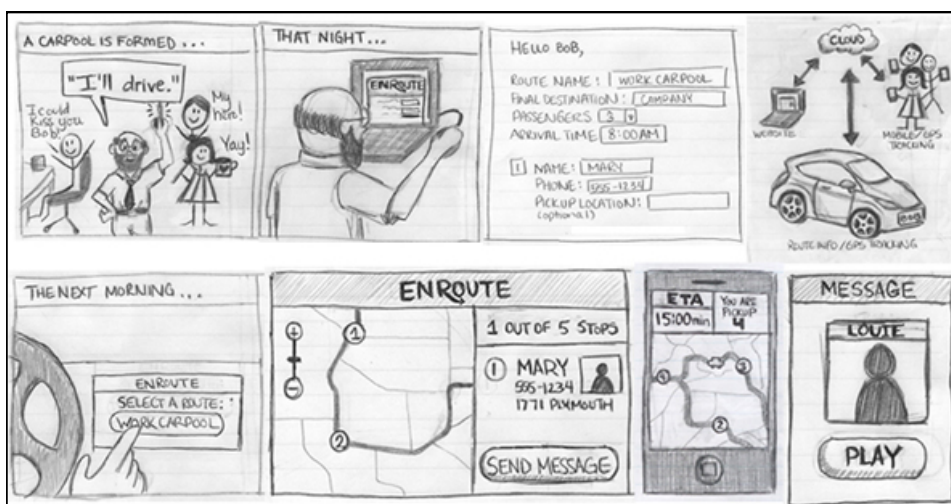 A CARPOOL IS FORMED...
"I'll drive."
I could
Kiss you
Bob!
My
hero!
Yay!
THAT NIGHT...
ENROUTE
HELLO BOB,
ROUTE NAME: WORK CARPOOL
FINAL DESTINATION: COMPANY
PASSENGERS 3
ARRIVAL TIME 8:00AM
1 NAME: MARY
PHONE: 555-1234
PICKUP LOCATION:
(optional)
CLOUD
WEBSITE
MOBILE/GPS
TRACKING
BOB
ROUTE INFO/GPS TRACKING
THE NEXT MORNING...
ENROUTE
SELECT A ROUTE:
WORK CARPOOL
ENROUTE
+
-
1
2
1 OUT OF 5 STOPS
1 MARY
555-1234
1771 PLYMOUTH
SEND MESSAGE
ETA
15:00min
YOU ARE
PICKUP
4
4
3
2
MESSAGE
LOUIE
PLAY